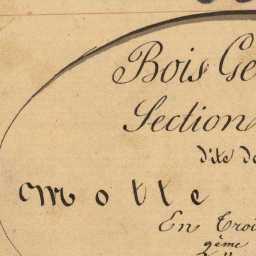 Bois Ge
Section
dite de
Molle
En Troi
2ème